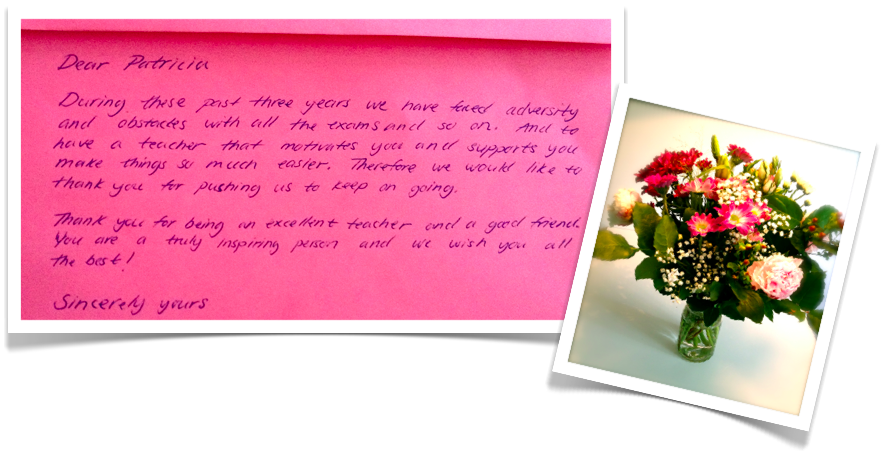 Dear Patricia
During these past three years we have faced adversity
and obstacles with all the exams and so on. And to
have a teacher that motivates you and supports you
make things so much easier. Therefore we would like to
thank you for pushing us to keep on going.
Thank you for being an excellent teacher and a good friend.
You are a truly inspiring person and we wish you all
the best!
Sincerely yours